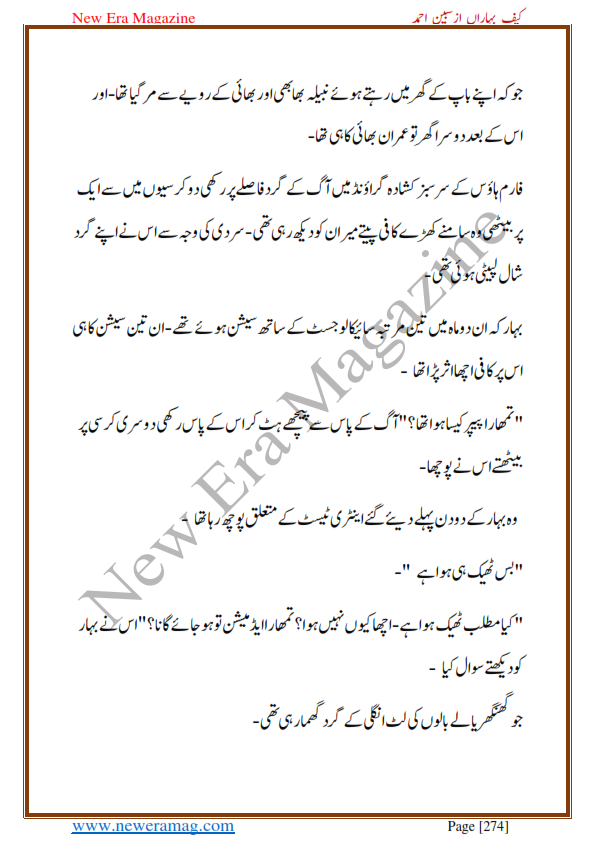 New Era Magazine
کیف بہاراں از سبین احمد
جو کہ اپنے باپ کے گھر میں رہتے ہوئے نبیلہ بھابھی اور بھائی کے رویے سے مر گیا تھا-اور
اس کے بعد دوسرا گھر تو عمران بھائی کا ہی تھا-
فارم ہاؤس کے سرسبز کشادہ گراؤنڈ میں آگ کے گرد فاصلے پر رکھی دو کرسیوں میں سے ایک
پر بیٹھی وہ سامنے کھڑے کافی پیتے میران کو دیکھ رہی تھی- سردی کی وجہ سے اس نے اپنے گرد
شال لپیٹی ہوئی تھی-
بہار کہ ان دو ماہ میں تین مرتبہ سائیکالوجسٹ کے ساتھ سیشن ہوئے تھے-ان تین سیشن کا ہی
اس پر کافی اچھا اثر پڑا تھا -
"تمھارا پیپر کیسا ہوا تھا؟" آگ کے پاس سے پیچھے ہٹ کر اس کے پاس رکھی دوسری کرسی پر
بیٹھتے اس نے پوچھا-
وہ بہار کے دو دن پہلے دیئے گئے اینٹری ٹیسٹ کے متعلق پوچھ رہا تھا -
"بس ٹھیک ہی ہوا ہے "-
"کیا مطلب ٹھیک ہوا ہے-اچھا کیوں نہیں ہوا؟ تمھارا ایڈمیشن تو ہو جائے گا نا؟" اس نے بہار
کو دیکھتے سوال کیا -
جو گھنگھریالے بالوں کی لٹ انگلی کے گرد گھما رہی تھی-
New Era Magazine
www.neweramag.com
Page [274]